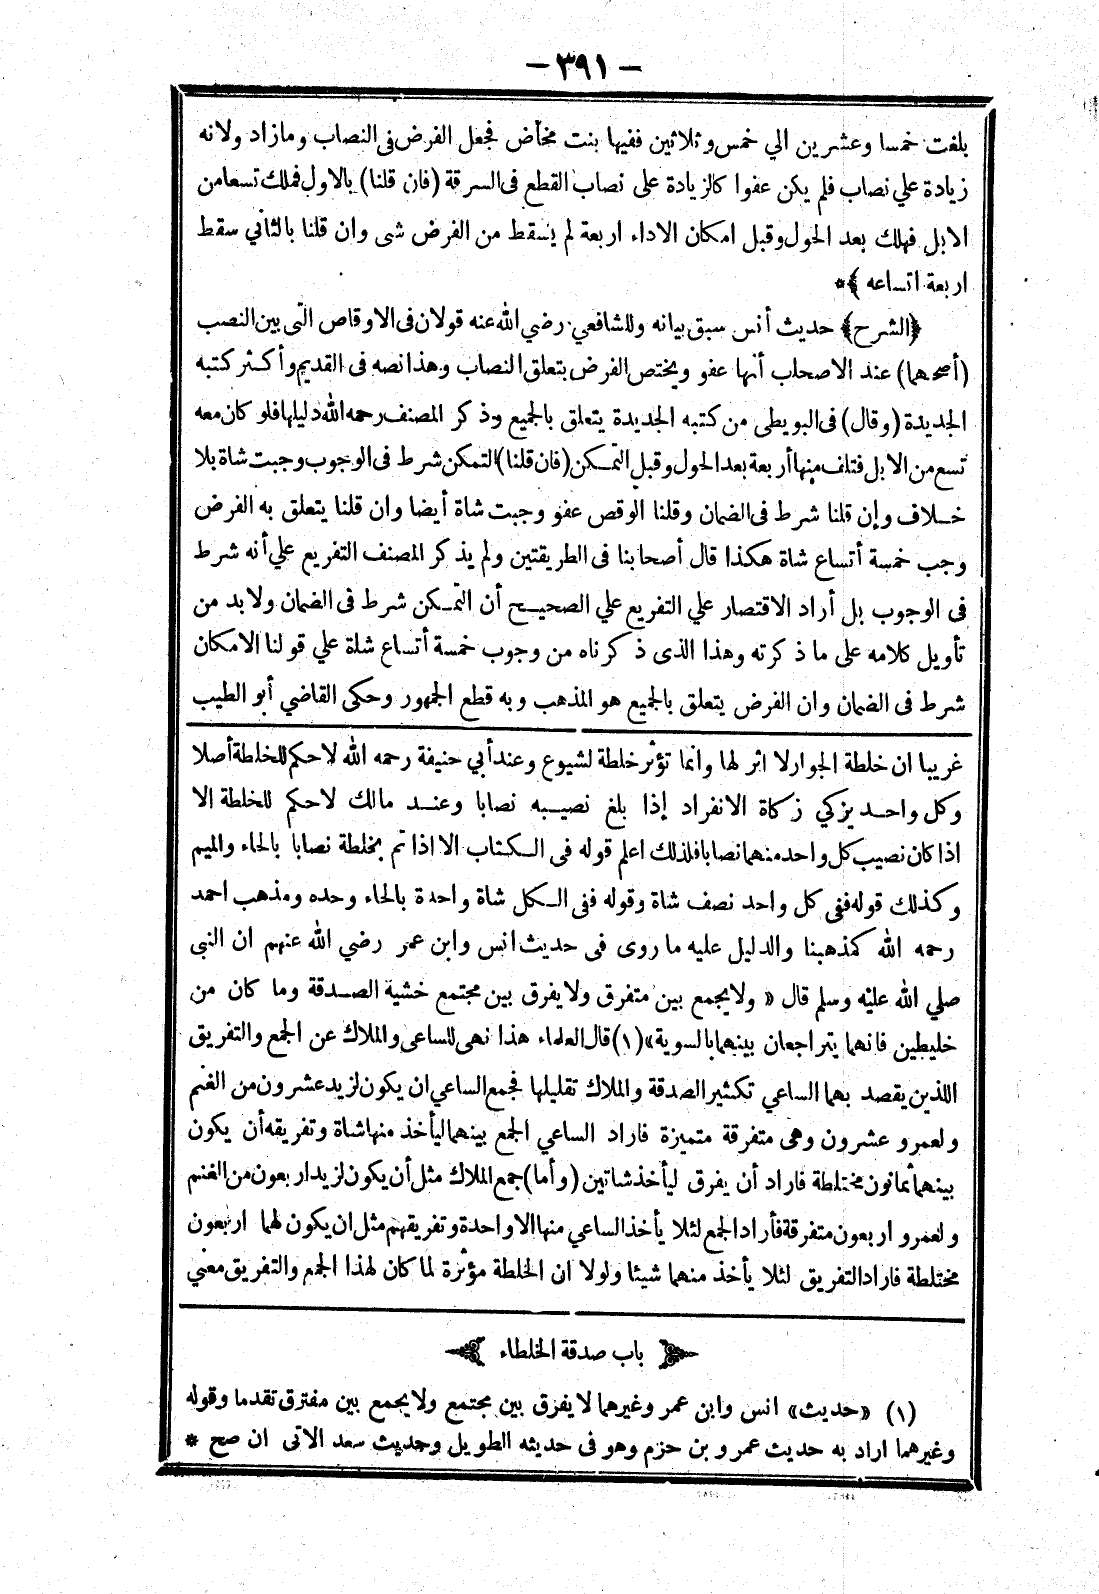 — ٣٩١ —
بلغت خمسا وعشرين الي خمس وثلاثين ففيها بنت مخاض فجعل الفرض فى النصاب وما زاد ولانه
زيادة علي نصاب فلم يكن عفوا كالزيادة على نصاب القطع فى السرقة (فان قلنا) بالاول فملك تسعا من
الابل فهلك بعد الحول وقبل امكان الاداء اربعة لم يسقط من الفرض شى وان قلنا بالثاني سقط
اربعة اتساعه ﴾*
﴿الشرح﴾ حديث أنس سبق بيانه وللشافعي رضي الله عنه قولان فى الاوقاص التى بين النصب
(أصحهما) عند الاصحاب أنها عفو ويختص الفرض بتعلق النصاب وهذا نصه فى القديم وأكثر كتبه
الجديدة (وقال) فى البويطى من كتبه الجديدة يتعلق بالجميع وذكر المصنف رحمه الله دليلها فلو كان معه
تسع من الابل فتلف منها أربعة بعد الحول وقبل التمكن (فان قلنا) التمكن شرط فى الوجوب وجبت شاة بلا
خلاف وإن قلنا شرط فى الضمان وقلنا الوقص عفو وجبت شاة أيضا وان قلنا يتعلق به الفرض
وجب خمسة أتساع شاة هكذا قال أصحابنا فى الطريقتين ولم يذكر المصنف التفريع علي أنه شرط
فى الوجوب بل أراد الاقتصار علي التفريع علي الصحيح أن التمكن شرط فى الضمان ولا بد من
تأويل كلامه على ما ذكرته وهذا الذى ذكرناه من وجوب خمسة أتساع شاة علي قولنا الامكان
شرط فى الضمان وان الفرض يتعلق بالجميع هو المذهب وبه قطع الجمهور وحكى القاضي أبو الطيب
غريبا ان خلطة الجوار لا اثر لها وانما تؤثر خلطة لشيوع وعند أبي حنيفة رحمه الله لا حكم للخلطة أصلا
وكل واحد يزكي زكاة الانفراد إذا بلغ نصيبه نصابا وعند مالك لا حكم للخلطة الا
اذا كان نصيب كل واحد منهما نصابا فلذلك اعلم قوله فى الكتاب الا اذا تم بخلطة نصابا بالحاء والميم
وكذلك قوله ففى كل واحد نصف شاة وقوله ففى الكل شاة واحدة بالحاء وحده ومذهب احمد
رحمه الله كمذهبنا والدليل عليه ما روى فى حديث انس وابن عمر رضي الله عنهم ان النبى
صلي الله عليه وسلم قال « ولا يجمع بين متفرق ولا يفرق بين مجتمع خشية الصدقة وما كان من
خليطين فانهما يتراجعان بينهما بالسوية» (١) قال العلماء هذا نهى للساعى والملاك عن الجمع والتفريق
اللذين يقصد بهما الساعي تكثير الصدقة والملاك تقليلها فجمع الساعي ان يكون لزيد عشرون من الغنم
ولعمرو عشرون وهى متفرقة متميزة فاراد الساعي الجمع بينهما ليأخذ منها شاة وتفريقه أن يكون
بينهما ثمانون مختلطة فاراد أن يفرق ليأخذ شاتين (وأما) جمع الملاك مثل أن يكون لزيد اربعون من الغنم
ولعمرو اربعون متفرقة فأراد الجمع لئلا يأخذ الساعي منها الا واحدة وتفريقهم مثل ان يكون لهما اربعون
مختلطة فاراد التفريق لئلا يأخذ منهما شيئا ولولا ان الخلطة مؤثرة لما كان لهذا الجمع والتفريق معني
باب صدقة الخلطاء
(١) «حديث» انس وابن عمر وغيرهما لا يفرق بين مجتمع ولا يجمع بين مفترق تقدما وقوله
وغيرهما اراد به حديث عمرو بن حزم وهو فى حديثه الطويل وحديث سعد الاتى ان صح *